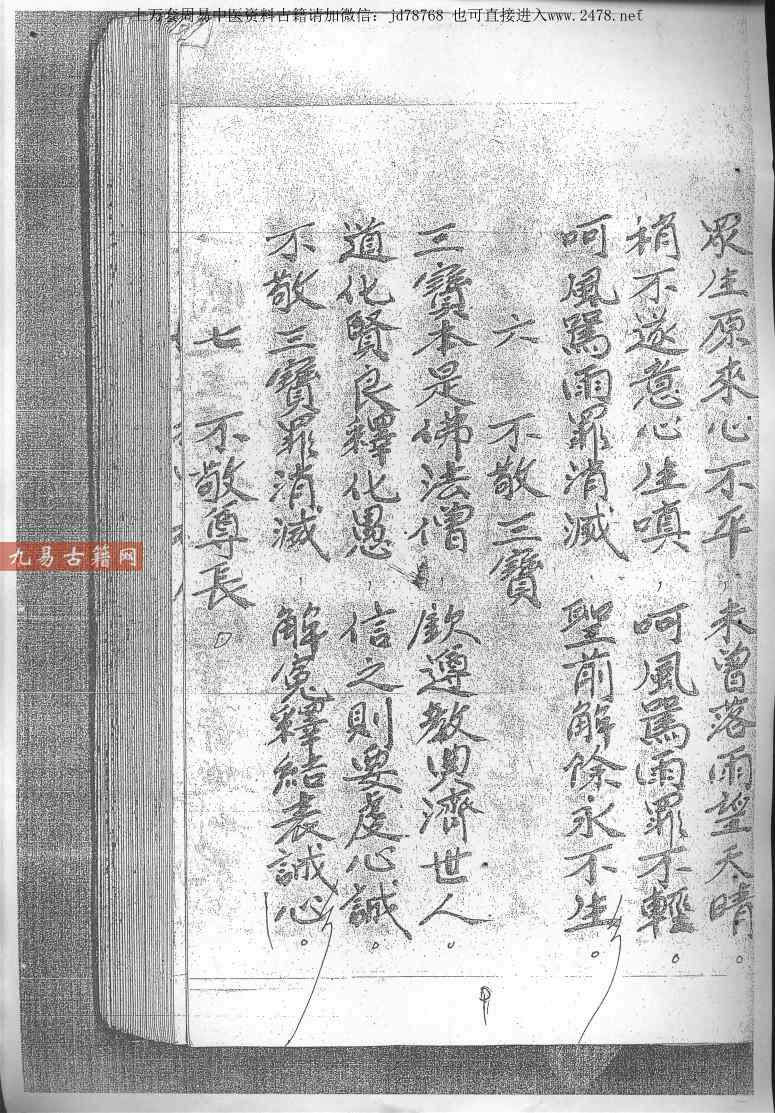 十万套周易中医资料古籍请加微信：jd78768 也可直接进入www.2478.net
眾生原來心不平，未曾落雨望天晴。
稍不遂意心生嗔，呵風罵雨罪不輕。
呵風罵雨罪消滅，聖前解除永不生。
六 不敬三寶
三寶本是佛法僧，欽遵教典濟世人。
道化賢良釋化愚，信之則要虔心誠。
不敬三寶罪消滅，解冤釋結表誠心。
七 不敬尊長。
九易古籍网